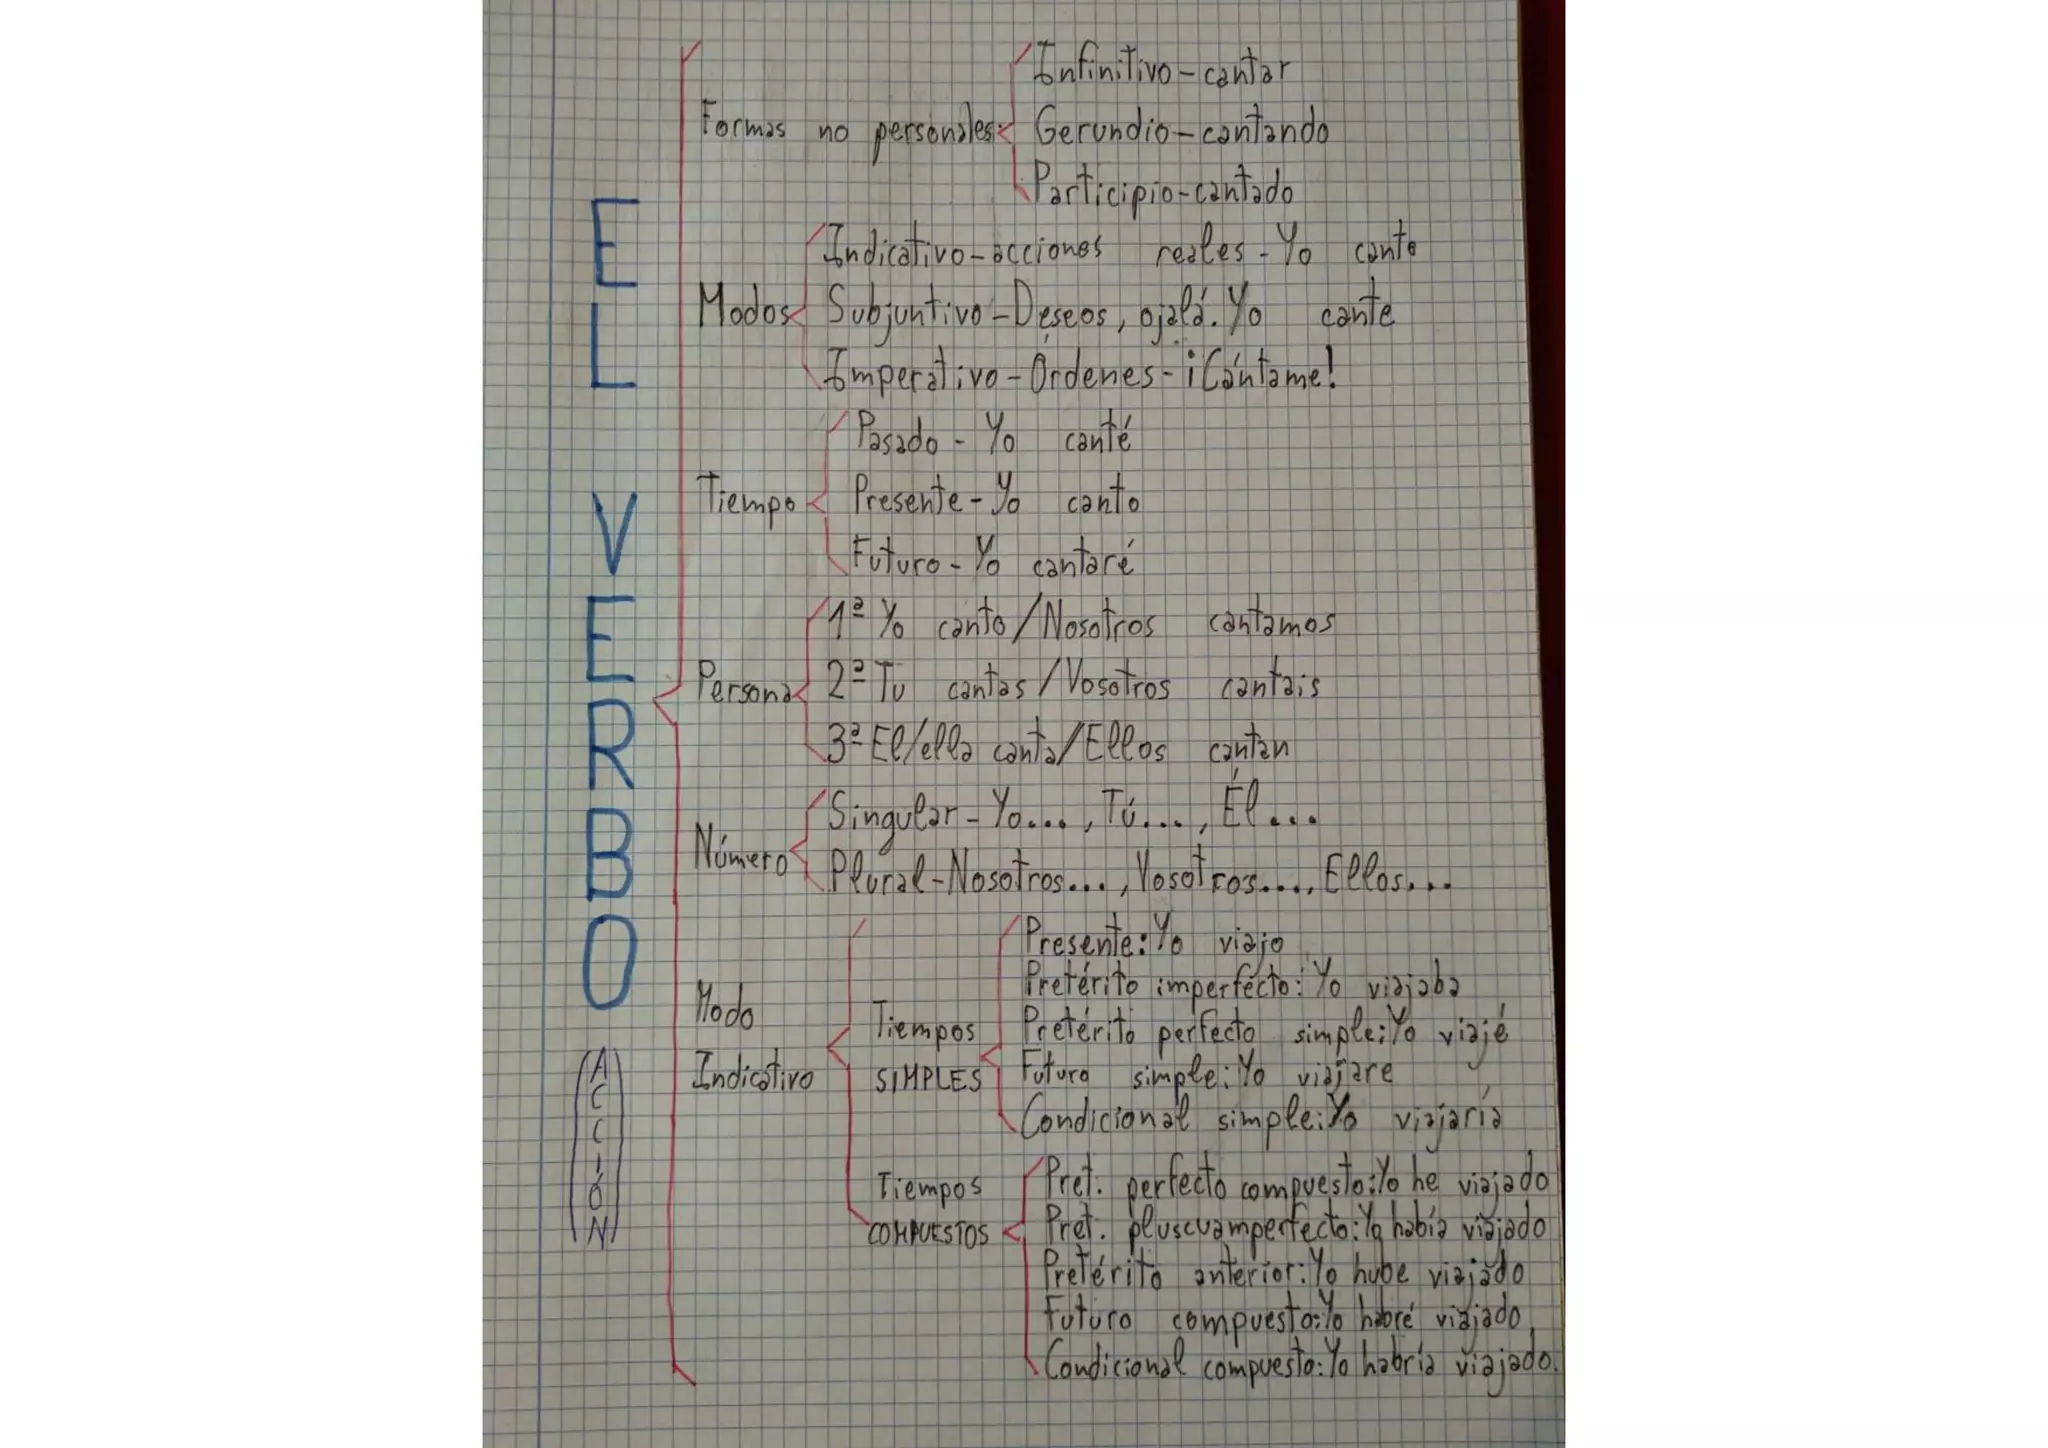 EL VERBO
(ACCIÓN)
Formas no personales
Infinitivo-cantar
Gerundio-cantando
Participio-cantado
Modos
Indicativo-acciones reales-Yo canto
Subjuntivo-Deseos, ojalá. Yo cante
Imperativo-Órdenes-¡Cántame!
Tiempo
Pasado-Yo canté
Presente-Yo canto
Futuro-Yo cantaré
Persona
1ª Yo canto/Nosotros cantamos
2ª Tu cantas/Vosotros cantais
3ª El/ella canta/Ellos cantan
Número
Singular-Yo..., Tú..., Él...
Plural-Nosotros..., Vosotros..., Ellos...
Modo
Indicativo
Tiempos
SIMPLES
Presente: Yo viajo
Pretérito imperfecto: Yo viajaba
Pretérito perfecto simple: Yo viajé
Futuro simple: Yo viajare
Condicional simple: Yo viajaría
Tiempos
COMPUESTOS
Pret. perfecto compuesto: Yo he viajado
Pret. pluscuamperfecto: Yo había viajado
Pretérito anterior: Yo hube viajado
Futuro compuesto: Yo habré viajado
Condicional compuesto: Yo habría viajado.